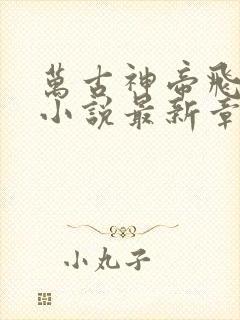 萬古神帝飛
小說最新章
小丸子